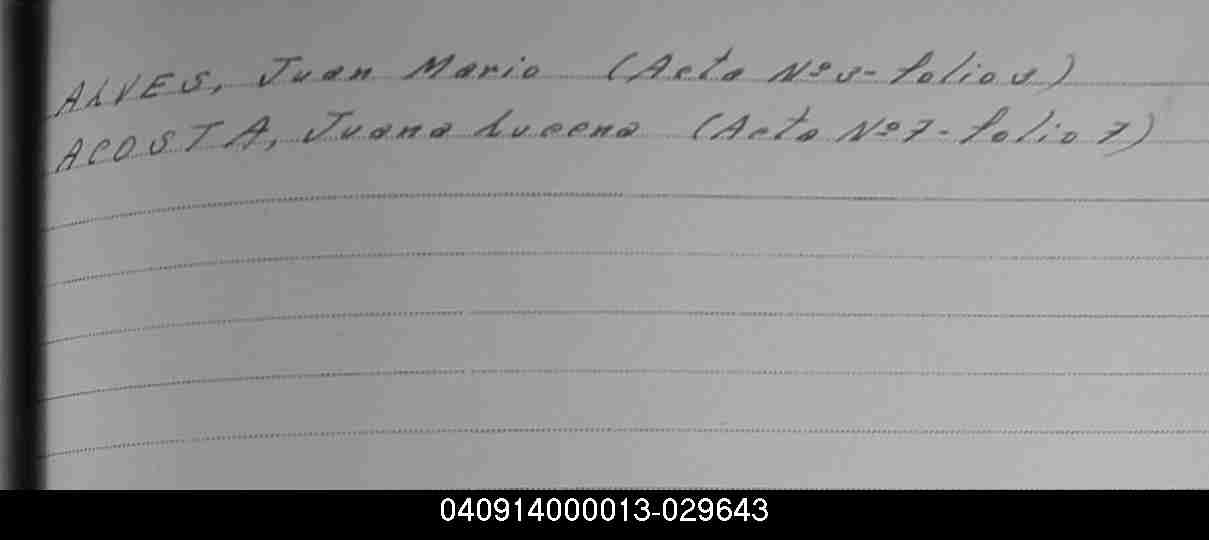 ALVES, Juan Mario (Acta Nº 3 - folio 3)
ACOSTA, Juana Lucena (Acta Nº 7 - folio 7)
040914000013-029643